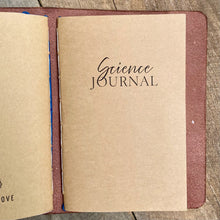 Science
JOURNAL
OVE